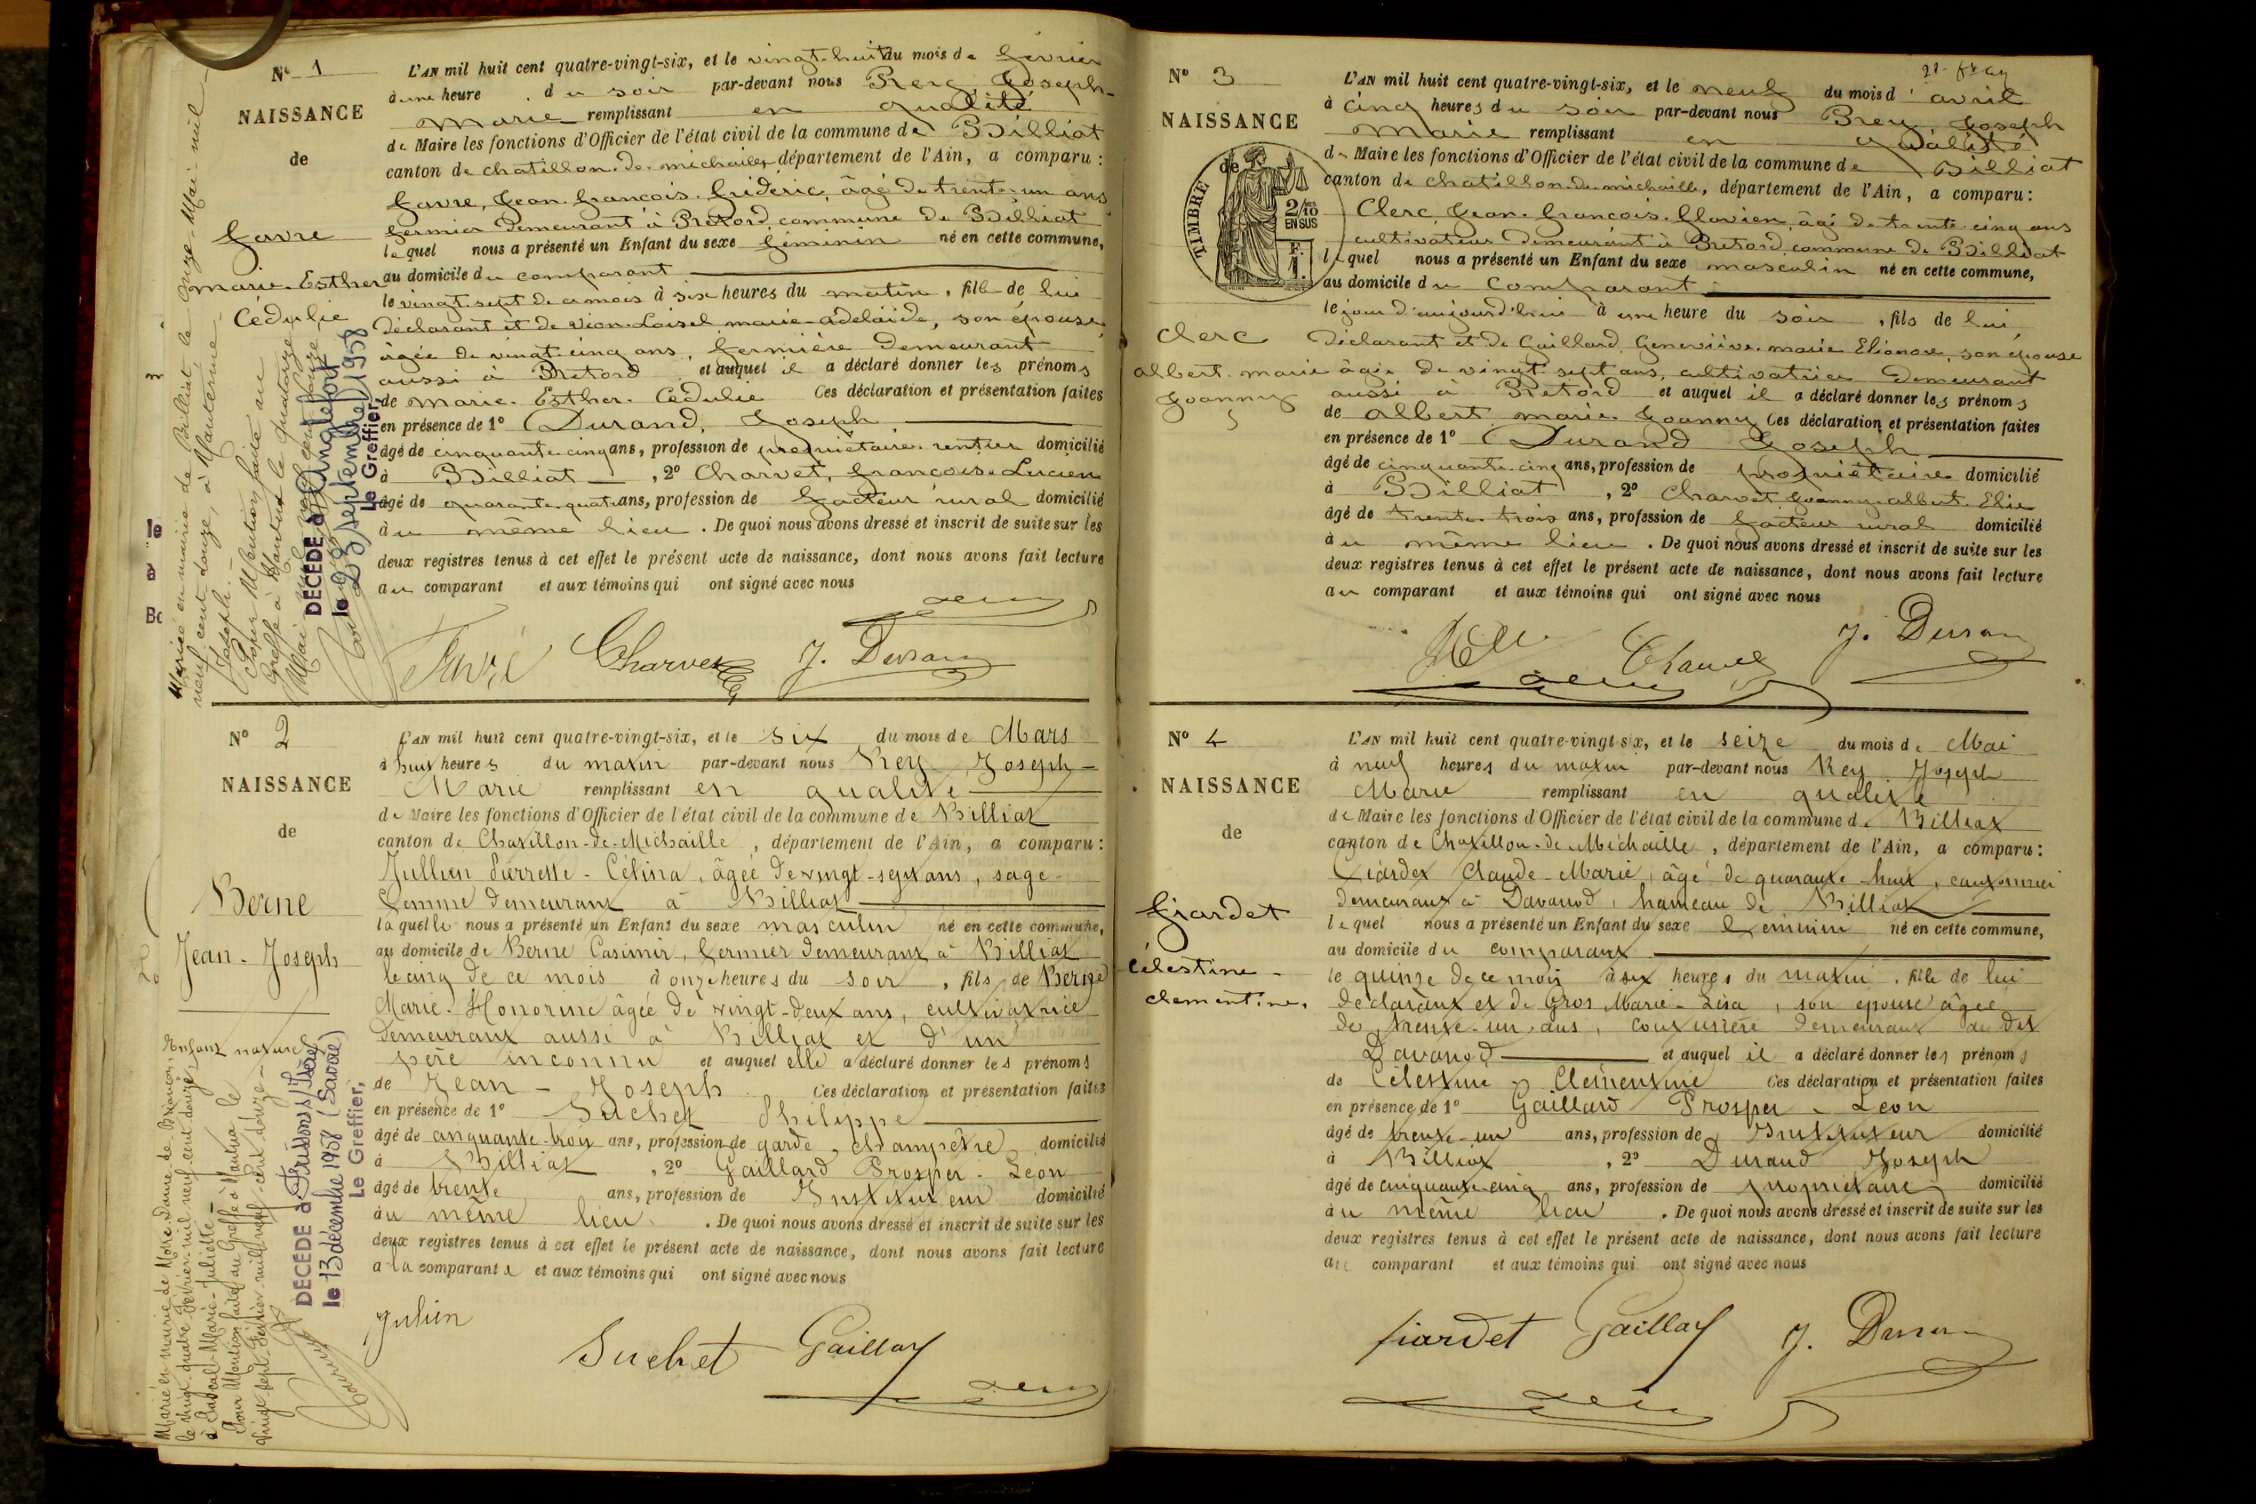 N° 1
NAISSANCE
de
Favre
Marie-Esther
Cédulie
L'AN mil huit cent quatre-vingt-six, et le vingt-huit du mois de février
à une heure du soir par-devant nous Rey, Joseph-
Marie remplissant en qualité
de Maire les fonctions d'Officier de l'état civil de la commune de Billiat
canton de chatillon-de-michaille département de l'Ain, a comparu :
Favre, Jean-françois-frédéric, âgé de trente-un ans
fermier demeurant à Retord, commune de Billiat
lequel nous a présenté un Enfant du sexe féminin né en cette commune,
au domicile du comparant
le vingt-sept de ce mois à six heures du matin, fille de lui
déclarant et de Vion-Loisel marie-adelaïde, son épouse
âgée de vingt-cinq ans, fermière demeurant
aussi à Retord et auquel il a déclaré donner les prénoms
de marie-Esther-Cédulie Ces déclaration et présentation faites
en présence de 1° Durand, Joseph
âgé de cinquante-cinq ans, profession de propriétaire-rentier domicilié
à Billiat, 2° Charvet, françois-Lucien
âgé de quarante-quatre ans, profession de facteur rural domicilié
au même lieu. De quoi nous avons dressé et inscrit de suite sur les
deux registres tenus à cet effet le présent acte de naissance, dont nous avons fait lecture
au comparant et aux témoins qui ont signé avec nous
Favre Charvet J. Durand
Mariée en mairie de Billiat le onze Mai mil
neuf cent douze, à
Joseph.
Pour Mention faite au
Greffe à Nantua le quatorze
Mai mil neuf cent douze
DECEDE à Anglefort
le 23 septembre 1958
Le Greffier,
N° 2
NAISSANCE
de
Berne
Jean-Joseph
L'AN mil huit cent quatre-vingt-six, et le six du mois de Mars
à huit heures du matin par-devant nous Rey Joseph-
Marie remplissant en qualité
de Maire les fonctions d'Officier de l'état civil de la commune de Billiat
canton de Chatillon-de-Michaille, département de l'Ain, a comparu :
Jullien Pierrette-Célina, âgée de vingt-sept ans, sage-
femme demeurant à Billiat
laquelle nous a présenté un Enfant du sexe masculin né en cette commune,
au domicile de Berne Casimir, fermier demeurant à Billiat
le cinq de ce mois à onze heures du soir, fils de Berne
Marie-Honorine âgée de vingt-deux ans, cultivatrice
demeurant aussi à Billiat et d'un
père inconnu et auquel elle a déclaré donner les prénoms
de Jean-Joseph Ces déclaration et présentation faites
en présence de 1° Suchet Philippe
âgé de cinquante-trois ans, profession de garde-champêtre domicilié
à Billiat, 2° Gaillard Prosper-Léon
âgé de trente ans, profession de Instituteur domicilié
au même lieu. De quoi nous avons dressé et inscrit de suite sur les
deux registres tenus à cet effet le présent acte de naissance, dont nous avons fait lecture
à la comparante et aux témoins qui ont signé avec nous
Julien
Suchet Gaillard
Enfant naturel
Marié en mairie de Notre-Dame de Briançon
le vingt-quatre février mil neuf cent douze,
à Marie-Juliette
Pour Mention faite au Greffe à Nantua le
vingt-sept février mil neuf cent douze
DECEDE à
le 13 décembre 1958 (Savoie)
Le Greffier,
N° 3
NAISSANCE
de
TIMBRE
2/10
EN SUS
F.
1.
Clerc
albert-marie
Joanny
L'AN mil huit cent quatre-vingt-six, et le neuf du mois d'avril
à cinq heures du soir par-devant nous Rey Joseph
Marie remplissant en qualité
de Maire les fonctions d'Officier de l'état civil de la commune de Billiat
canton de chatillon-de-michaille, département de l'Ain, a comparu :
Clerc, Jean-françois-flavien, âgé de trente-cinq ans
cultivateur demeurant à Retord, commune de Billiat
lequel nous a présenté un Enfant du sexe masculin né en cette commune,
au domicile du comparant
le jour d'aujourd'hui à une heure du soir, fils de lui
déclarant et de Gaillard Geneviève-marie Eléonore, son épouse
âgée de vingt-sept ans, cultivatrice demeurant
aussi à Retord et auquel il a déclaré donner les prénoms
de albert marie Joanny Ces déclaration et présentation faites
en présence de 1° Durand Joseph
âgé de cinquante-cinq ans, profession de propriétaire domicilié
à Billiat, 2° Charvet Joanny-albert-Elie
âgé de trente-trois ans, profession de facteur rural domicilié
au même lieu. De quoi nous avons dressé et inscrit de suite sur les
deux registres tenus à cet effet le présent acte de naissance, dont nous avons fait lecture
au comparant et aux témoins qui ont signé avec nous
J. Durand
N° 4
NAISSANCE
de
Fiardet
Célestine-
clementine.
L'AN mil huit cent quatre-vingt-six, et le seize du mois de Mai
à neuf heures du matin par-devant nous Rey Joseph
Marie remplissant en qualité
de Maire les fonctions d'Officier de l'état civil de la commune de Billiat
canton de Chatillon-de-Michaille, département de l'Ain, a comparu :
Fiardet Claude-Marie, âgé de quarante-huit, cantonnier
demeurant à Davanod, hameau de Billiat
lequel nous a présenté un Enfant du sexe féminin né en cette commune,
au domicile du comparant
le quinze de ce mois à six heures du matin, fille de lui
déclarant et de Gros Marie-Lisa, son épouse âgée
de trente-un ans, couturière demeurant au dit
Davanod et auquel il a déclaré donner les prénoms
de Célestine-Clémentine Ces déclaration et présentation faites
en présence de 1° Gaillard Prosper-Léon
âgé de trente-un ans, profession de Instituteur domicilié
à Billiat, 2° Durand Joseph
âgé de cinquante-cinq ans, profession de propriétaire domicilié
au même lieu. De quoi nous avons dressé et inscrit de suite sur les
deux registres tenus à cet effet le présent acte de naissance, dont nous avons fait lecture
au comparant et aux témoins qui ont signé avec nous
fiardet Gaillard J. Durand